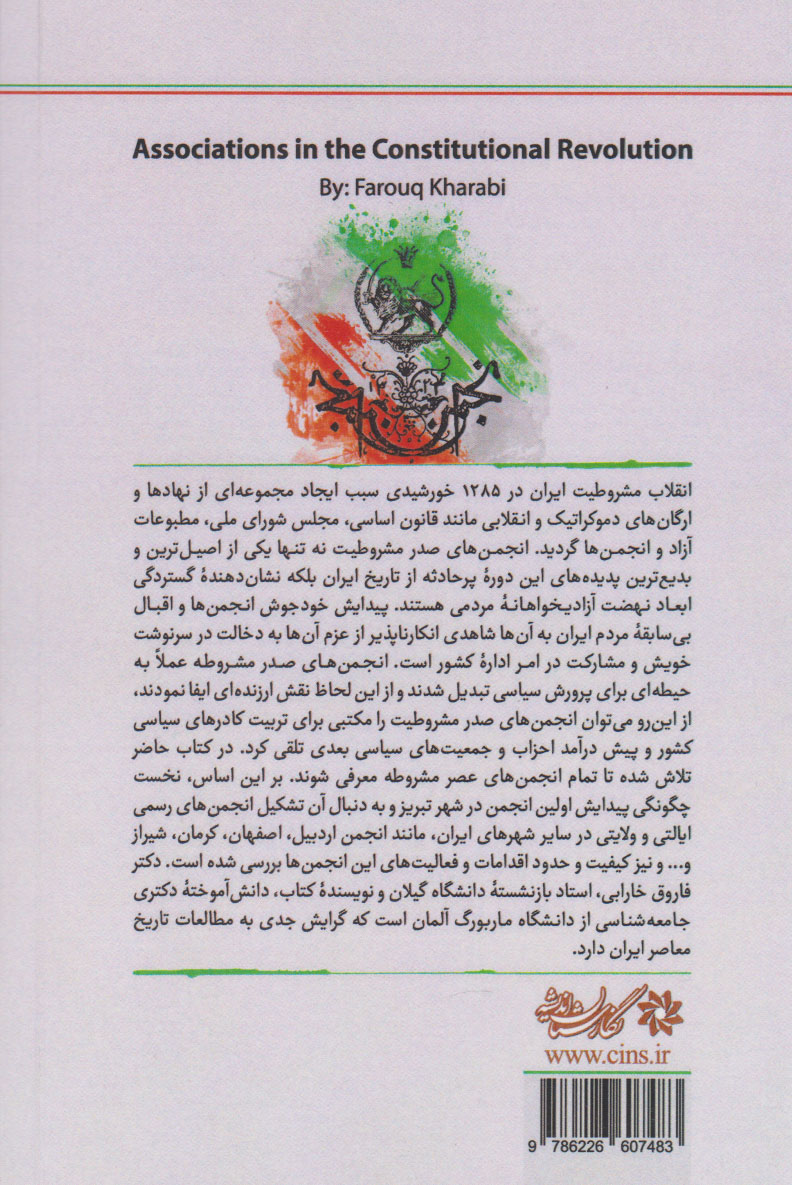 Associations in the Constitutional Revolution
By: Farouq Kharabi
۱۳۲۴
انقلاب مشروطیت ایران در ۱۲۸۵ خورشیدی سبب ایجاد مجموعه‌ای از نهادها و
ارگان‌های دموکراتیک و انقلابی مانند قانون اساسی، مجلس شورای ملی، مطبوعات
آزاد و انجمن‌ها گردید. انجمن‌های صدر مشروطیت نه تنها یکی از اصیل‌ترین و
بدیع‌ترین پدیده‌های این دورهٔ پرحادثه از تاریخ ایران بلکه نشان‌دهندهٔ گستردگی
ابعاد نهضت آزادیخواهانهٔ مردمی هستند. پیدایش خودجوش انجمن‌ها و اقبال
بی‌سابقهٔ مردم ایران به آن‌ها شاهدی انکارناپذیر از عزم آن‌ها به دخالت در سرنوشت
خویش و مشارکت در امر ادارهٔ کشور است. انجمن‌های صدر مشروطه عملاً به
حیطه‌ای برای پرورش سیاسی تبدیل شدند و از این لحاظ نقش ارزنده‌ای ایفا نمودند،
از این‌رو می‌توان انجمن‌های صدر مشروطیت را مکتبی برای تربیت کادرهای سیاسی
کشور و پیش درآمد احزاب و جمعیت‌های سیاسی بعدی تلقی کرد. در کتاب حاضر
تلاش شده تا تمام انجمن‌های عصر مشروطه معرفی شوند. بر این اساس، نخست
چگونگی پیدایش اولین انجمن در شهر تبریز و به دنبال آن تشکیل انجمن‌های رسمی
ایالتی و ولایتی در سایر شهرهای ایران، مانند انجمن اردبیل، اصفهان، کرمان، شیراز
و... و نیز کیفیت و حدود اقدامات و فعالیت‌های این انجمن‌ها بررسی شده است. دکتر
فاروق خارابی، استاد بازنشستهٔ دانشگاه گیلان و نویسندهٔ کتاب، دانش‌آموختهٔ دکتری
جامعه‌شناسی از دانشگاه ماربورگ آلمان است که گرایش جدی به مطالعات تاریخ
معاصر ایران دارد.
نگارستان اندیشه
www.cins.ir
9 786226 607483